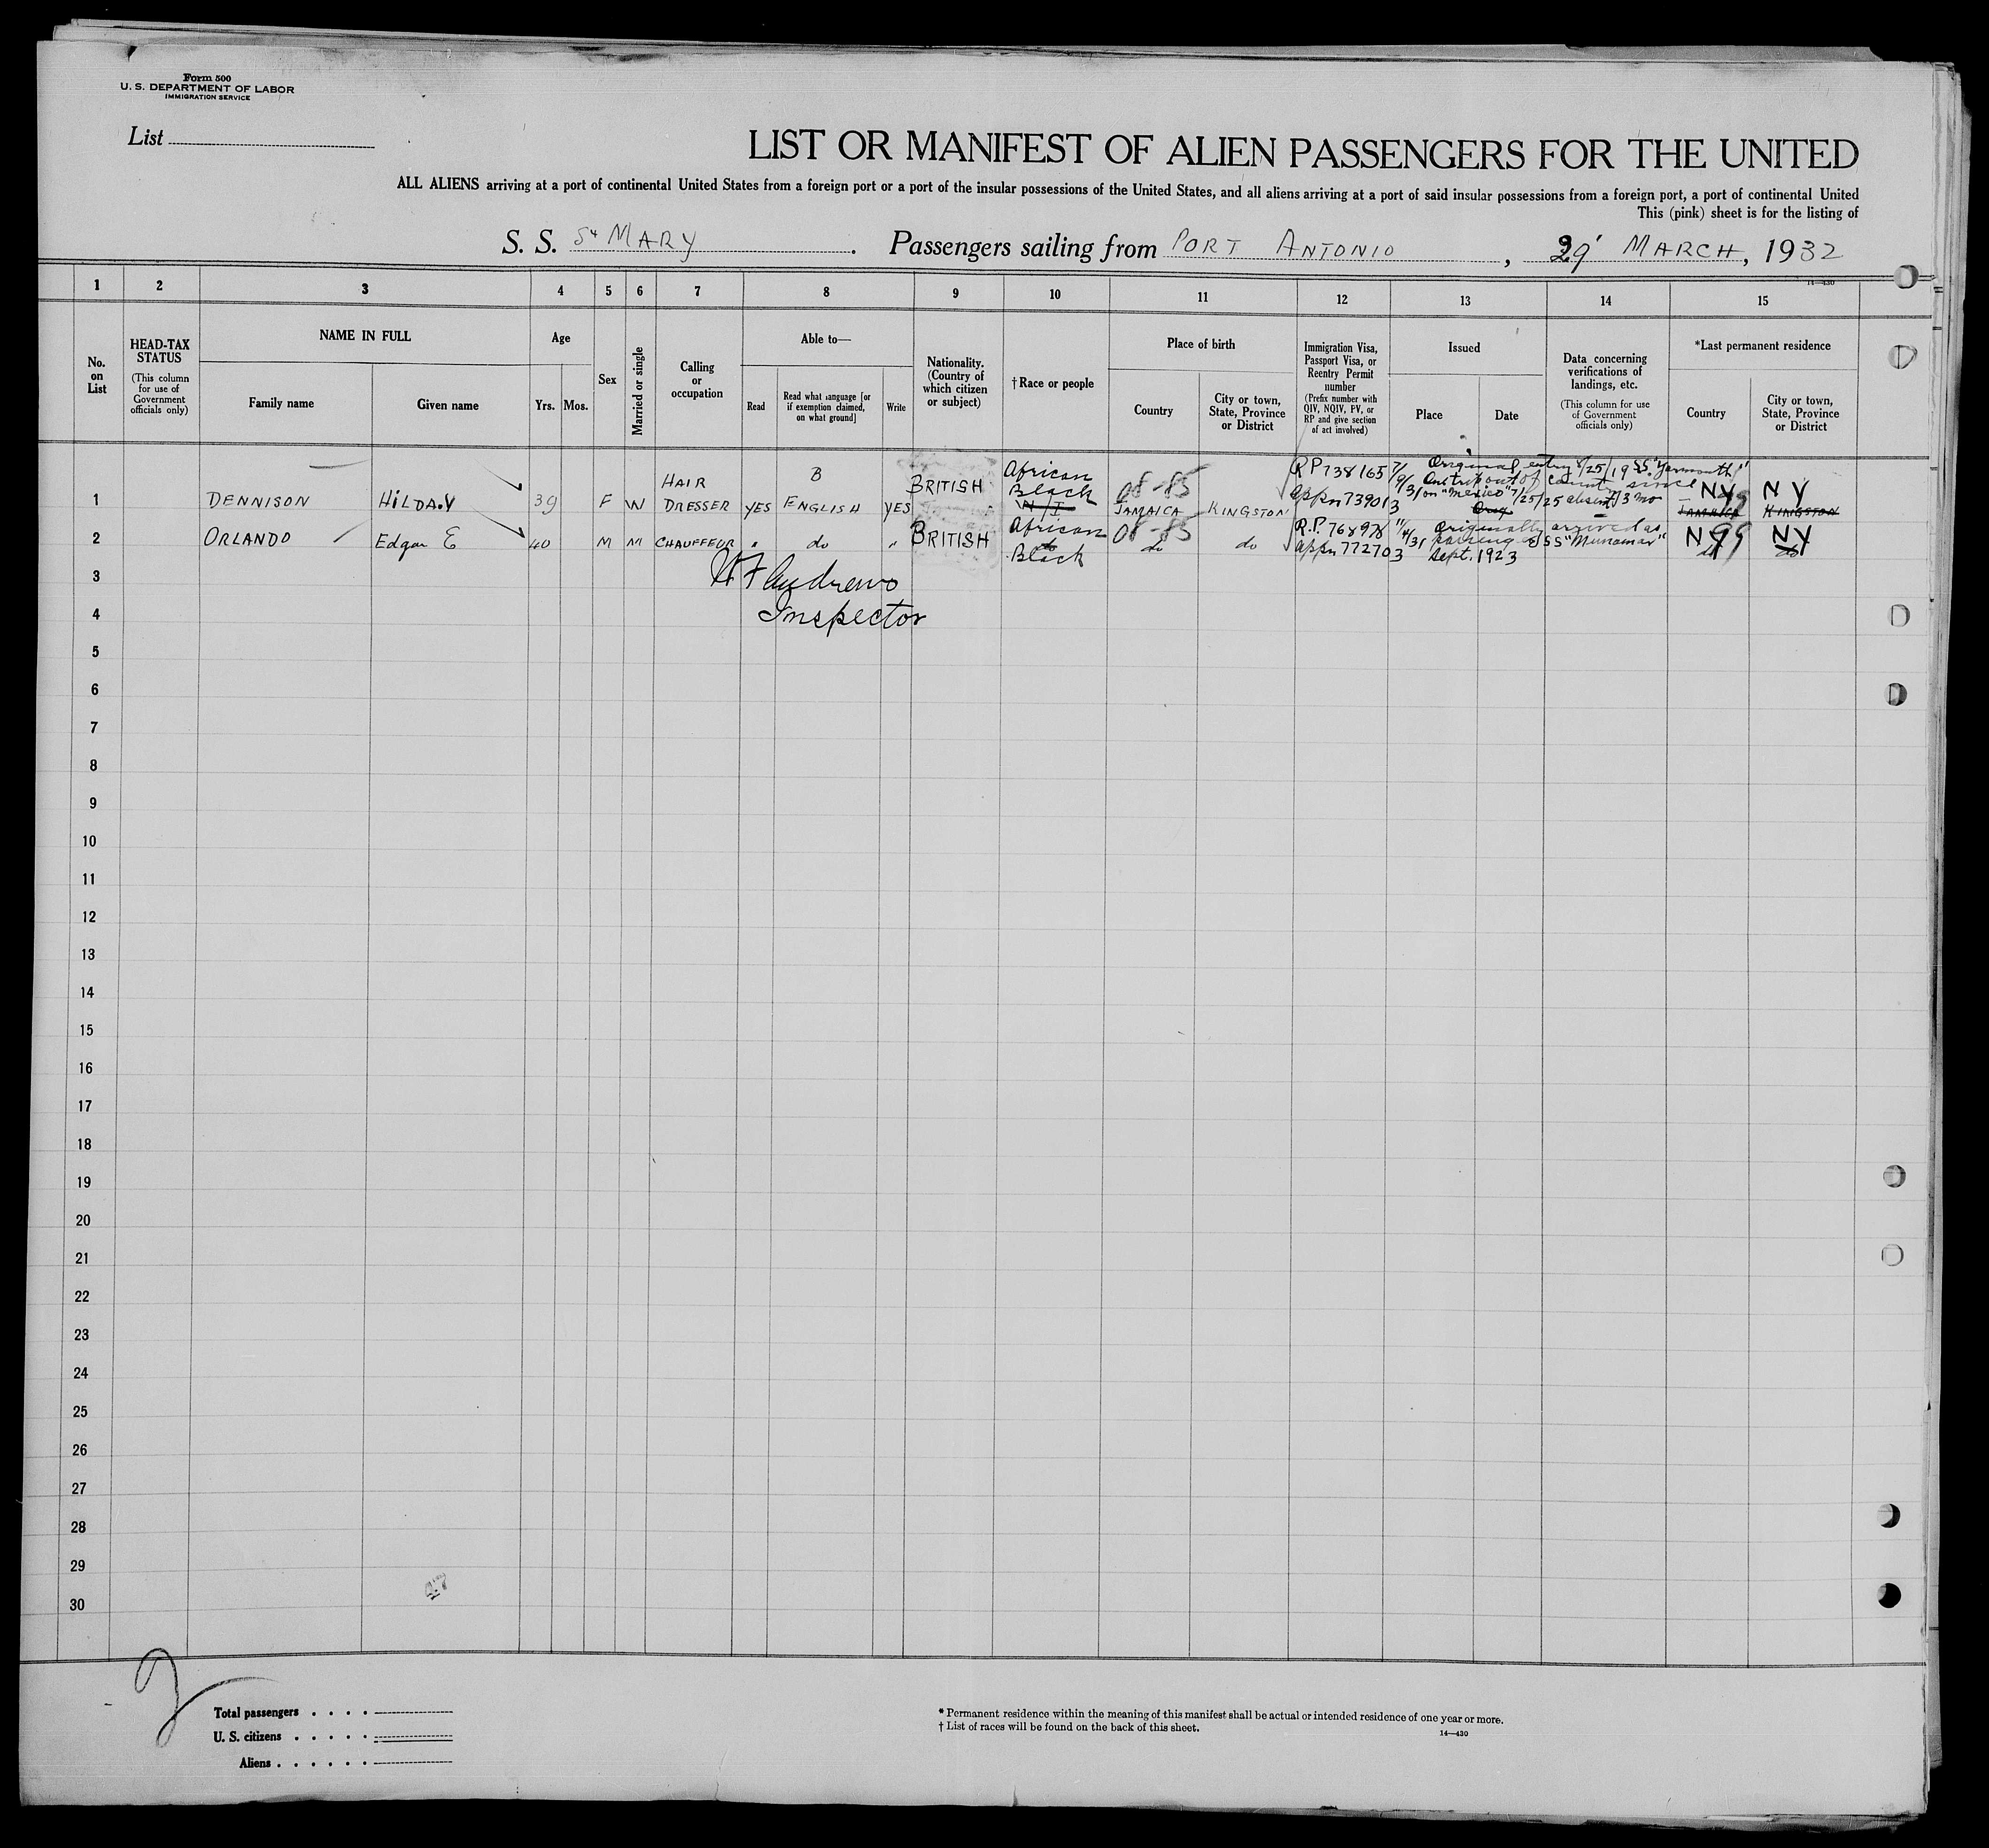 Form 500
U. S. DEPARTMENT OF LABOR
IMMIGRATION SERVICE
List
LIST OR MANIFEST OF ALIEN PASSENGERS FOR THE UNITED
ALL ALIENS arriving at a port of continental United States from a foreign port or a port of the insular possessions of the United States, and all aliens arriving at a port of said insular possessions from a foreign port, a port of continental United
This (pink) sheet is for the listing of
S. S. St MARY . Passengers sailing from PORT ANTONIO , 29 MARCH, 1932
14—430
1 2 3 4 5 6 7 8 9 10 11 12 13 14 15
No. on List
HEAD-TAX STATUS
(This column for use of Government officials only)
NAME IN FULL
Family name
Given name
Age
Yrs. Mos.
Sex
Married or single
Calling or occupation
Able to—
Read
Read what language [or if exemption claimed, on what ground]
Write
Nationality. (Country of which citizen or subject)
† Race or people
Place of birth
Country
City or town, State, Province or District
Immigration Visa, Passport Visa, or Reentry Permit number
(Prefix number with QIV, NQIV, PV, or RP and give section of act involved)
Issued
Place
Date
Data concerning verifications of landings, etc.
(This column for use of Government officials only)
*Last permanent residence
Country
City or town, State, Province or District
HAIR B African RP738165 7/9/31 Original entry 9/25/19 SS. "Yarmouth"
BRITISH Black 08-85 out of since
1 DENNISON HILDA.V 39 F W DRESSER YES ENGLISH YES W/I JAMAICA KINGSTON appn 739013 on "Mexico" 7/25/25 absent 3 mo NY NY
JAMAICA KINGSTON
2 ORLANDO Edgar E 40 M M CHAUFFEUR " do " BRITISH African do Black 08-85 do do R.P. 768978 11/4/31 originally arrived as SS "Munamar" NY 99 NY
appn 772703 Sept. 1923
3 Andrews
4 Inspector
5
6
7
8
9
10
11
12
13
14
15
16
17
18
19
20
21
22
23
24
25
26
27
28
29
47
30
2
Total passengers . . . .
U. S. citizens . . . . .
Aliens . . . . . .
* Permanent residence within the meaning of this manifest shall be actual or intended residence of one year or more.
† List of races will be found on the back of this sheet.
14—430